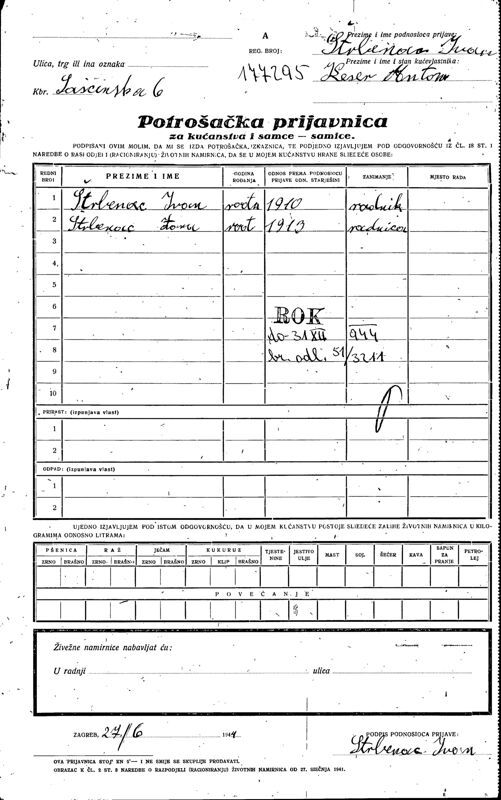 A
Prezime i ime podnosioca prijave:
REG. BROJ:
Štrbenac Ivan
Ulica, trg ili ina oznaka
177295
Prezime i ime i stan kućevlastnika:
Keser Antom
Kbr. Lašćinska 6
Potrošačka prijavnica
za kućanstva i samce – samice.
PODPISANI OVIM MOLIM, DA MI SE IZDA POTROŠAČKA ISKAZNICA, TE PODJEDNO IZJAVLJUJEM POD ODGOVORNOŠĆU IZ ČL. 18 ST. 1
NAREDBE O RASPODJELI (RACIONIRANJU) ŽIVOTNIH NAMIRNICA, DA SE U MOJEM KUĆANSTVU HRANE SLIJEDEĆE OSOBE:
REDNI BROJ PREZIME I IME GODINA ROĐENJA ODNOS PREMA PODNOSIOCU PRIJAVE ODN. STARJEŠINI ZANIMANJE MJESTO RADA
1 Štrbenac Ivan 1910 radnik
2 Štrbenac 1913 radnica
3
4
5
6 ROK
7 do 31 XII 944
8 br. odl. 51/3211
9
10
PRIRAST: (izpunjava vlast)
1
2
ODPAD: (izpunjava vlast)
1
2
UJEDNO IZJAVLJUJEM POD ISTOM ODGOVORNOŠĆU, DA U MOJEM KUĆANSTVU POSTOJE SLIJEDEĆE ZALIHE ŽIVOTNIH NAMIRNICA U KILO-
GRAMIMA ODNOSNO LITRAMA:
PŠENICA RAŽ JEČAM KUKURUZ TJESTE-NINE JESTIVO ULJE MAST SOL ŠEĆER KAVA SAPUN ZA PRANJE PETRO-LEJ
ZRNO BRAŠNO ZRNO BRAŠNO ZRNO BRAŠNO ZRNO KLIP BRAŠNO
POVEĆANJE
Živežne namirnice nabavljat ću:
U radnji ulica
ZAGREB, 27/6 1944
PODPIS PODNOSIOCA PRIJAVE:
Štrbenac Ivan
OVA PRIJAVNICA STOJI KN 5— I NE SMIJE SE SKUPLJE PRODAVATI.
OBRAZAC K ČL. 2 ST. 2 NAREDBE O RAZPODJELI (RACIONIRANJU) ŽIVOTNIH NAMIRNICA OD 27. SIEČNJA 1941.